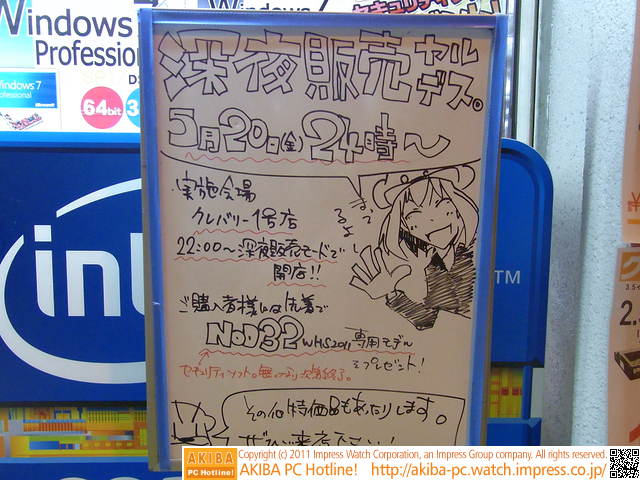 Windows 7
Professional
64bit
深夜販売ヤル
デス。
5月20日(金)24時〜
まってるよー
実施会場
クレバリー1号店
22:00〜深夜販売モードで
開店!!
ご購入者様には先着で
NOD32 WHS2011専用モデル
をプレゼント!
セキュリティソフト。無くなり次第終了。
その他特価品もあったりします。
ぜひご来店下さい!
int
TM
AKIBA
PC Hotline!
Copyright (c) 2011 Impress Watch Corporation, an Impress Group company. All rights reserved.
AKIBA PC Hotline! http://akiba-pc.watch.impress.co.jp/